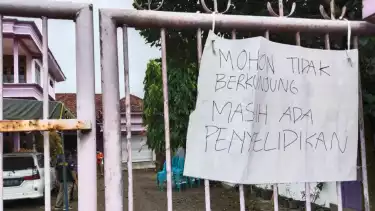 MOHON TIDAK
BERKUNJUNG
MASIH ADA
PENYELIDIKAN